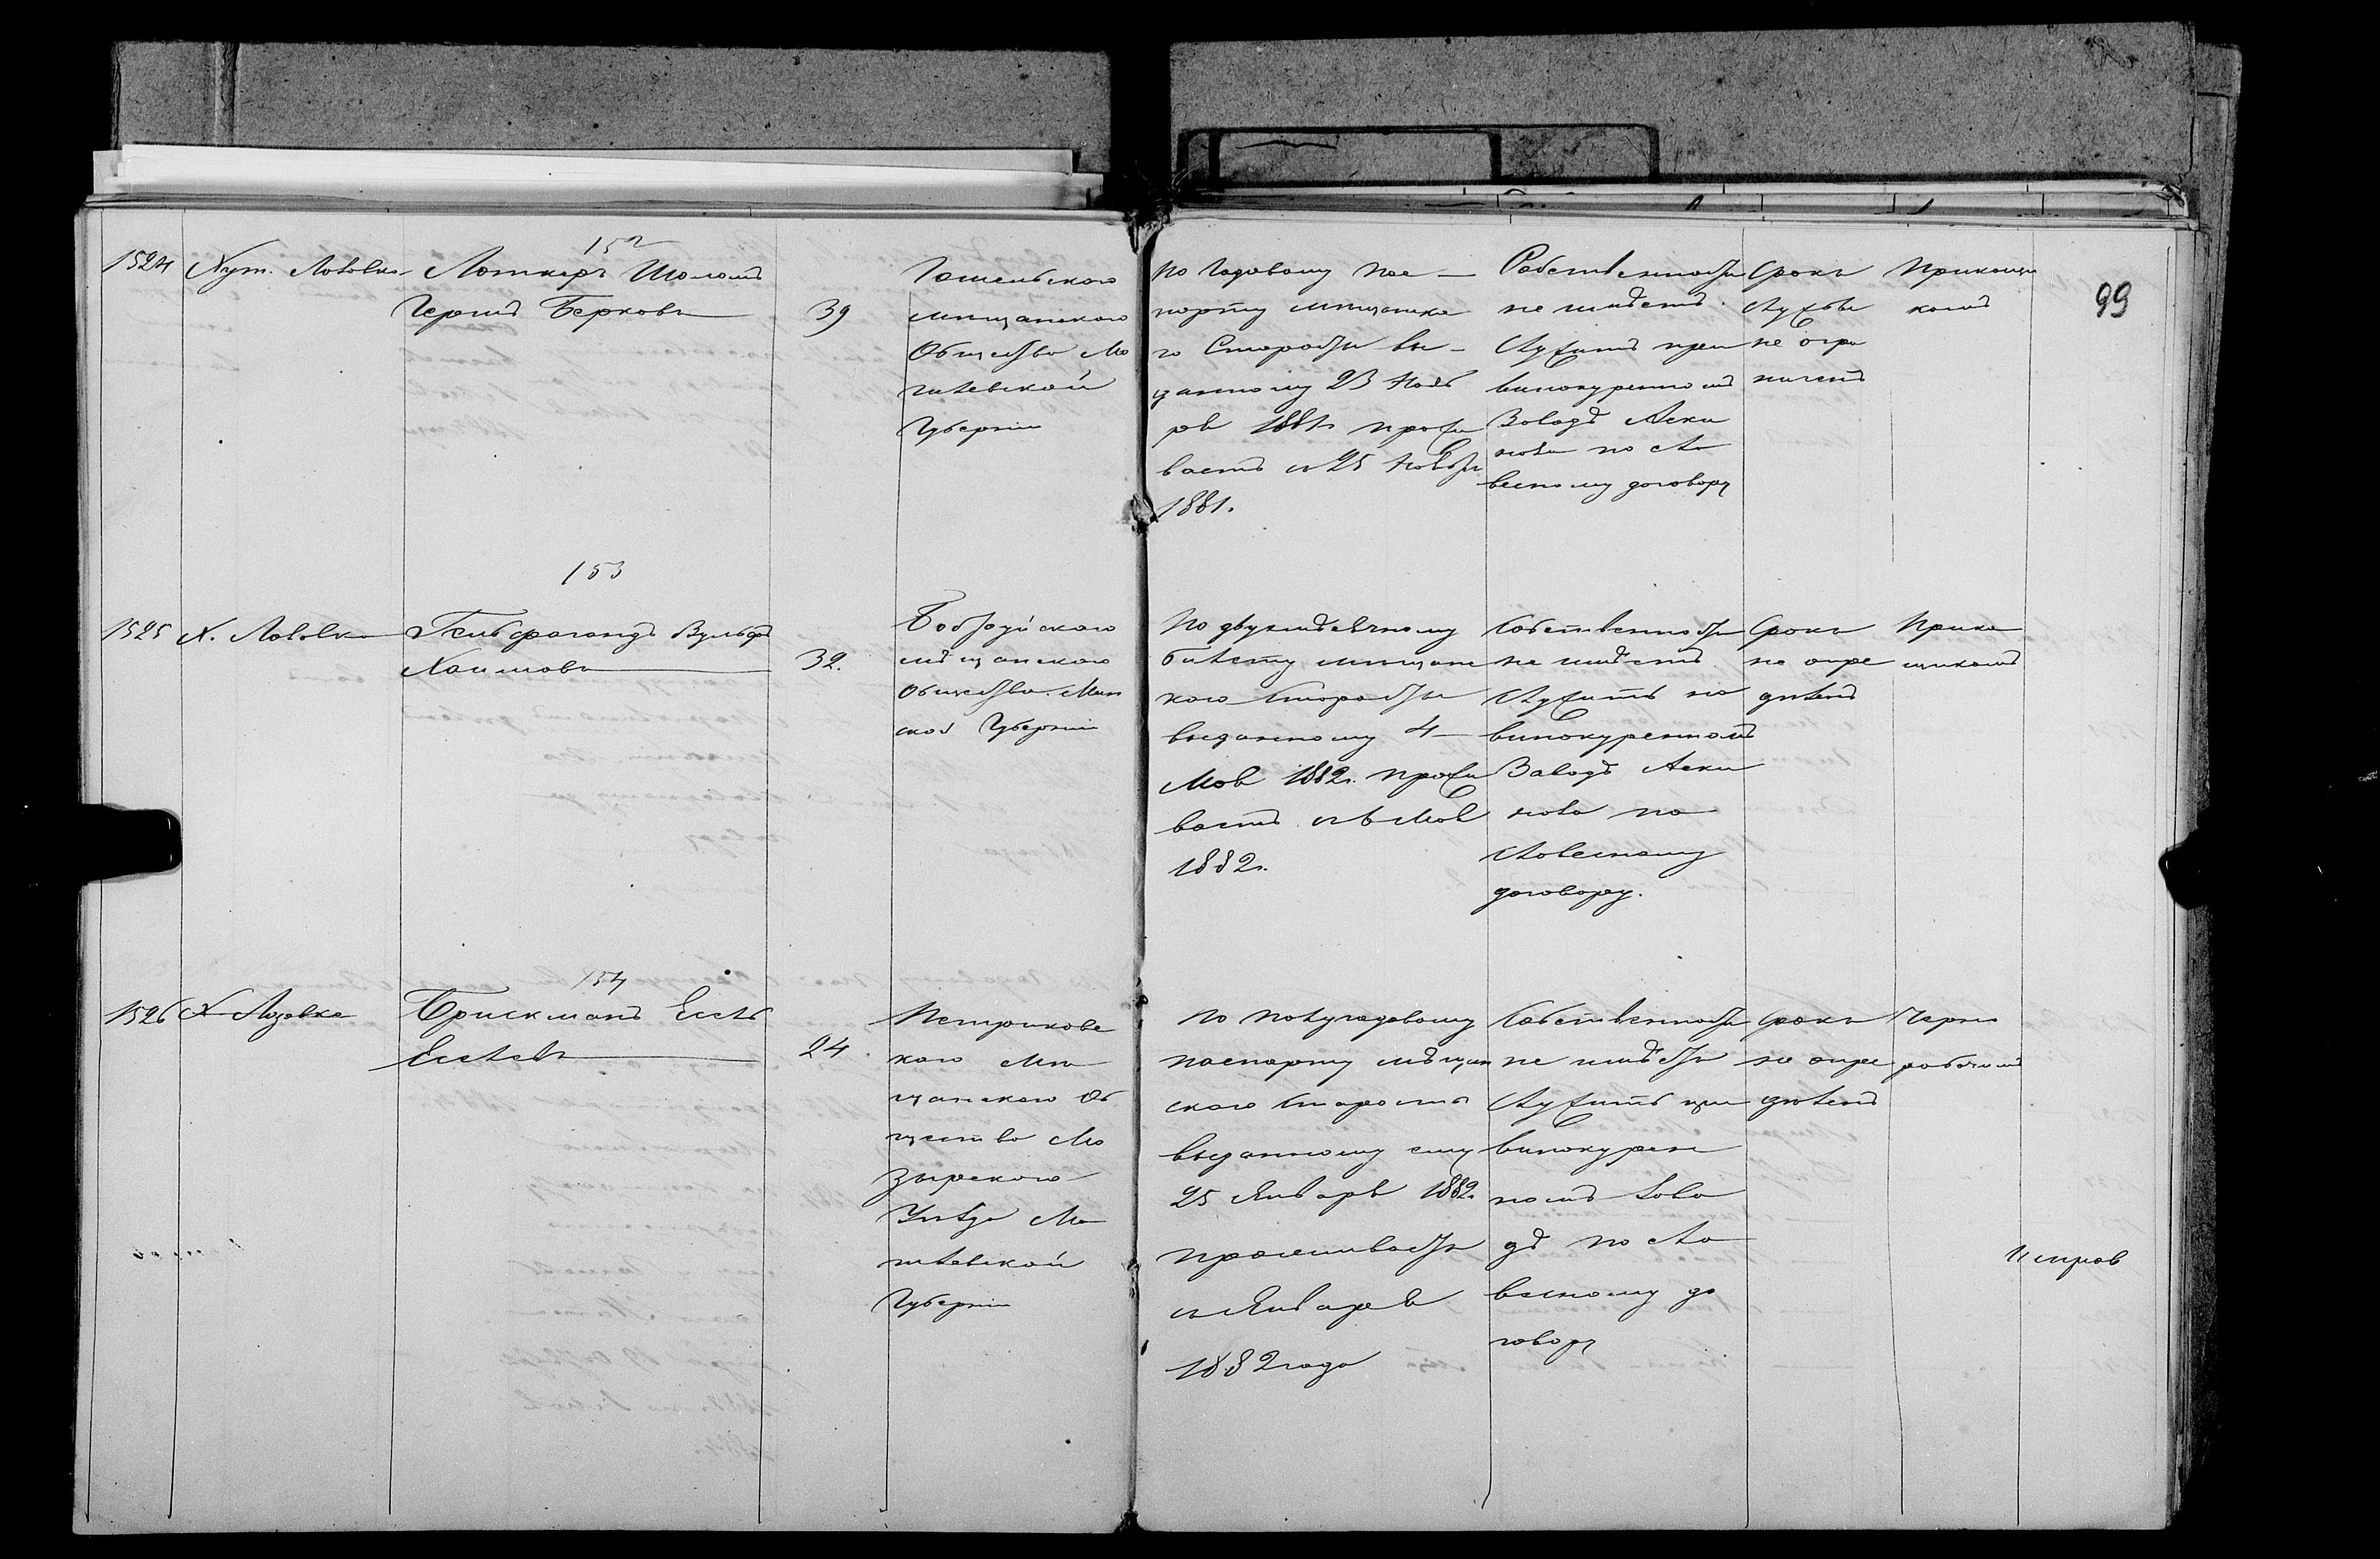 152
1524 Хут. Лозовка Лоткеръ Шоломъ
Гершъ Берковъ 39
Гомельского
мѣщанского
Общества Мо
гилевской
Губерніи
По Годовому пас-
порту мѣщанска
го Старосты вы-
данному 23 Нояб
ря 1881 прожи
ваетъ съ 25 Ноября
1881.
Собственности
не имѣетъ.
Служитъ при
винокуренномъ
Заводѣ
по сло
весному договору
Срокъ
службы
не огра
ниченъ
Прикащи
комъ
99
153
1525 Х. Лозовка Гельфагандъ Вульфъ
Хаимовъ 32.
Бобруйского
мѣщанского
Общества Мин
ской Губерніи
По двухмѣсячному
билету мѣщанс
кого Старосты
выданному 4
Мая 1882г. прожи
ваетъ съ 6 Мая
1882г.
Собственности
не имѣетъ
Служитъ на
винокуренномъ
Заводѣ
по
словесному
договору.
Срокъ
не опре
дѣленъ
Прика
щикомъ
154
1526 Х. Лозовка Брискманъ Есель
Еселевъ 24.
Петриковс
кого Мѣ
щанского Об
щества Мо
зырского
Уѣзда Мо
гилевской
Губерніи
По полугодовому
паспорту мѣщан
ского Старосты
выданному ему
25 Января 1882г.
проживаетъ
съ Января
1882 года
Собственности
не имѣетъ
Служитъ при
винокурен
номъ Заво
дѣ по сло
весному до
говору
Срокъ
не опре
дѣленъ
Черно
рабочимъ